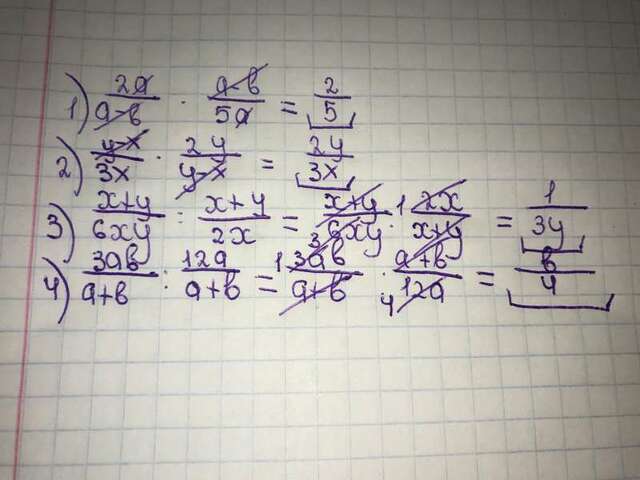 1) 2a/(a-b) · (a-b)/5a = 2/5
2) (y-x)/3x · 2y/(y-x) = 2y/3x
3) (x+y)/6xy : (x+y)/2x = (x+y)/6xy 3 · 1 2x/(x+y) = 1/3y
4) 3ab/(a+b) : 12a/(a+b) = 1 3ab/(a+b) · (a+b)/12a 4 = b/4